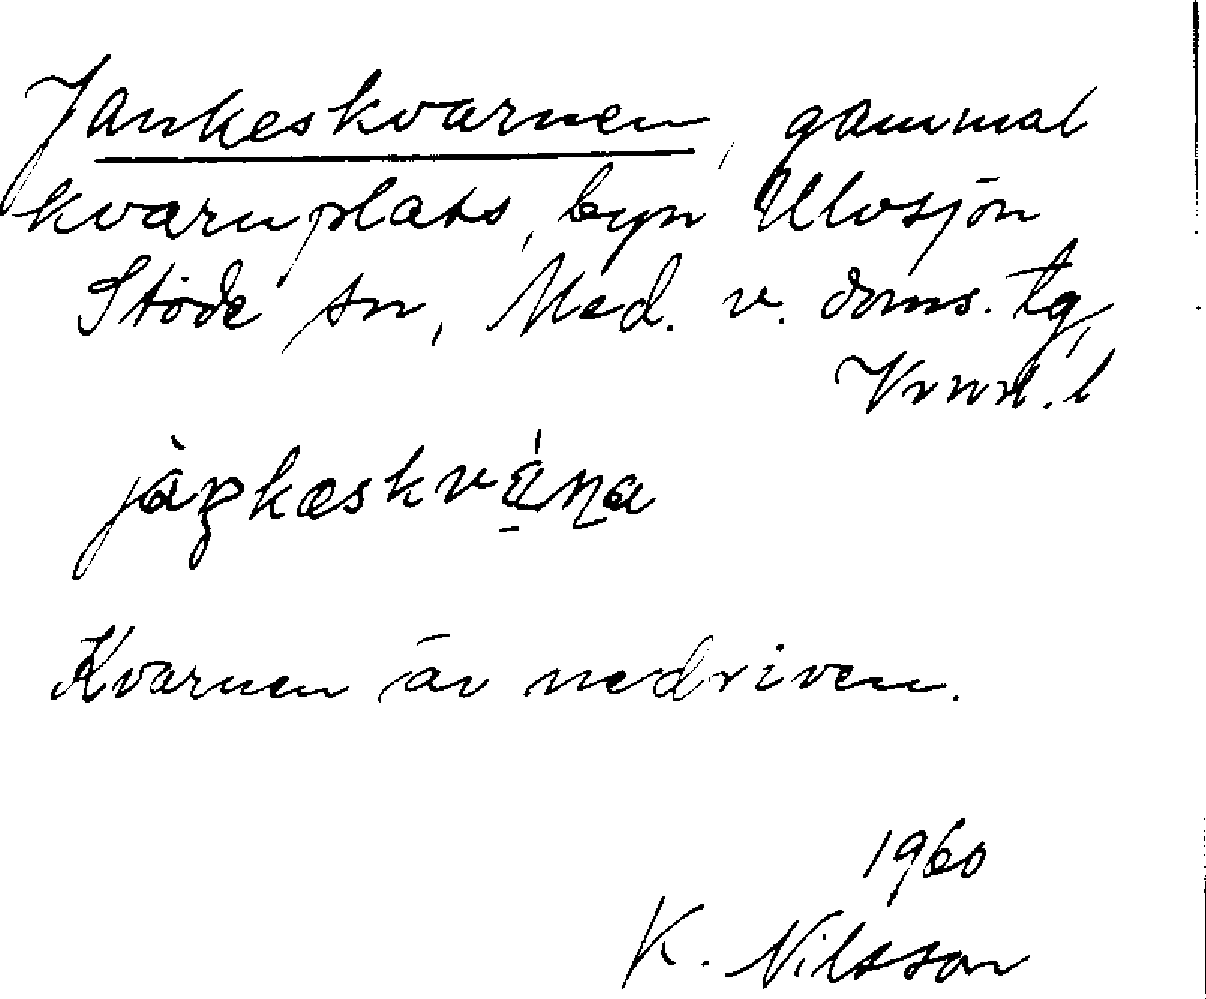 Jankeskvarnen, gammal
kvarnplats, byn Ulvsjön
Stöde sn, Med. v. doms. tg,
Vrnrl. l
Kvarnen är nedriven.
1960
K. Nilsson